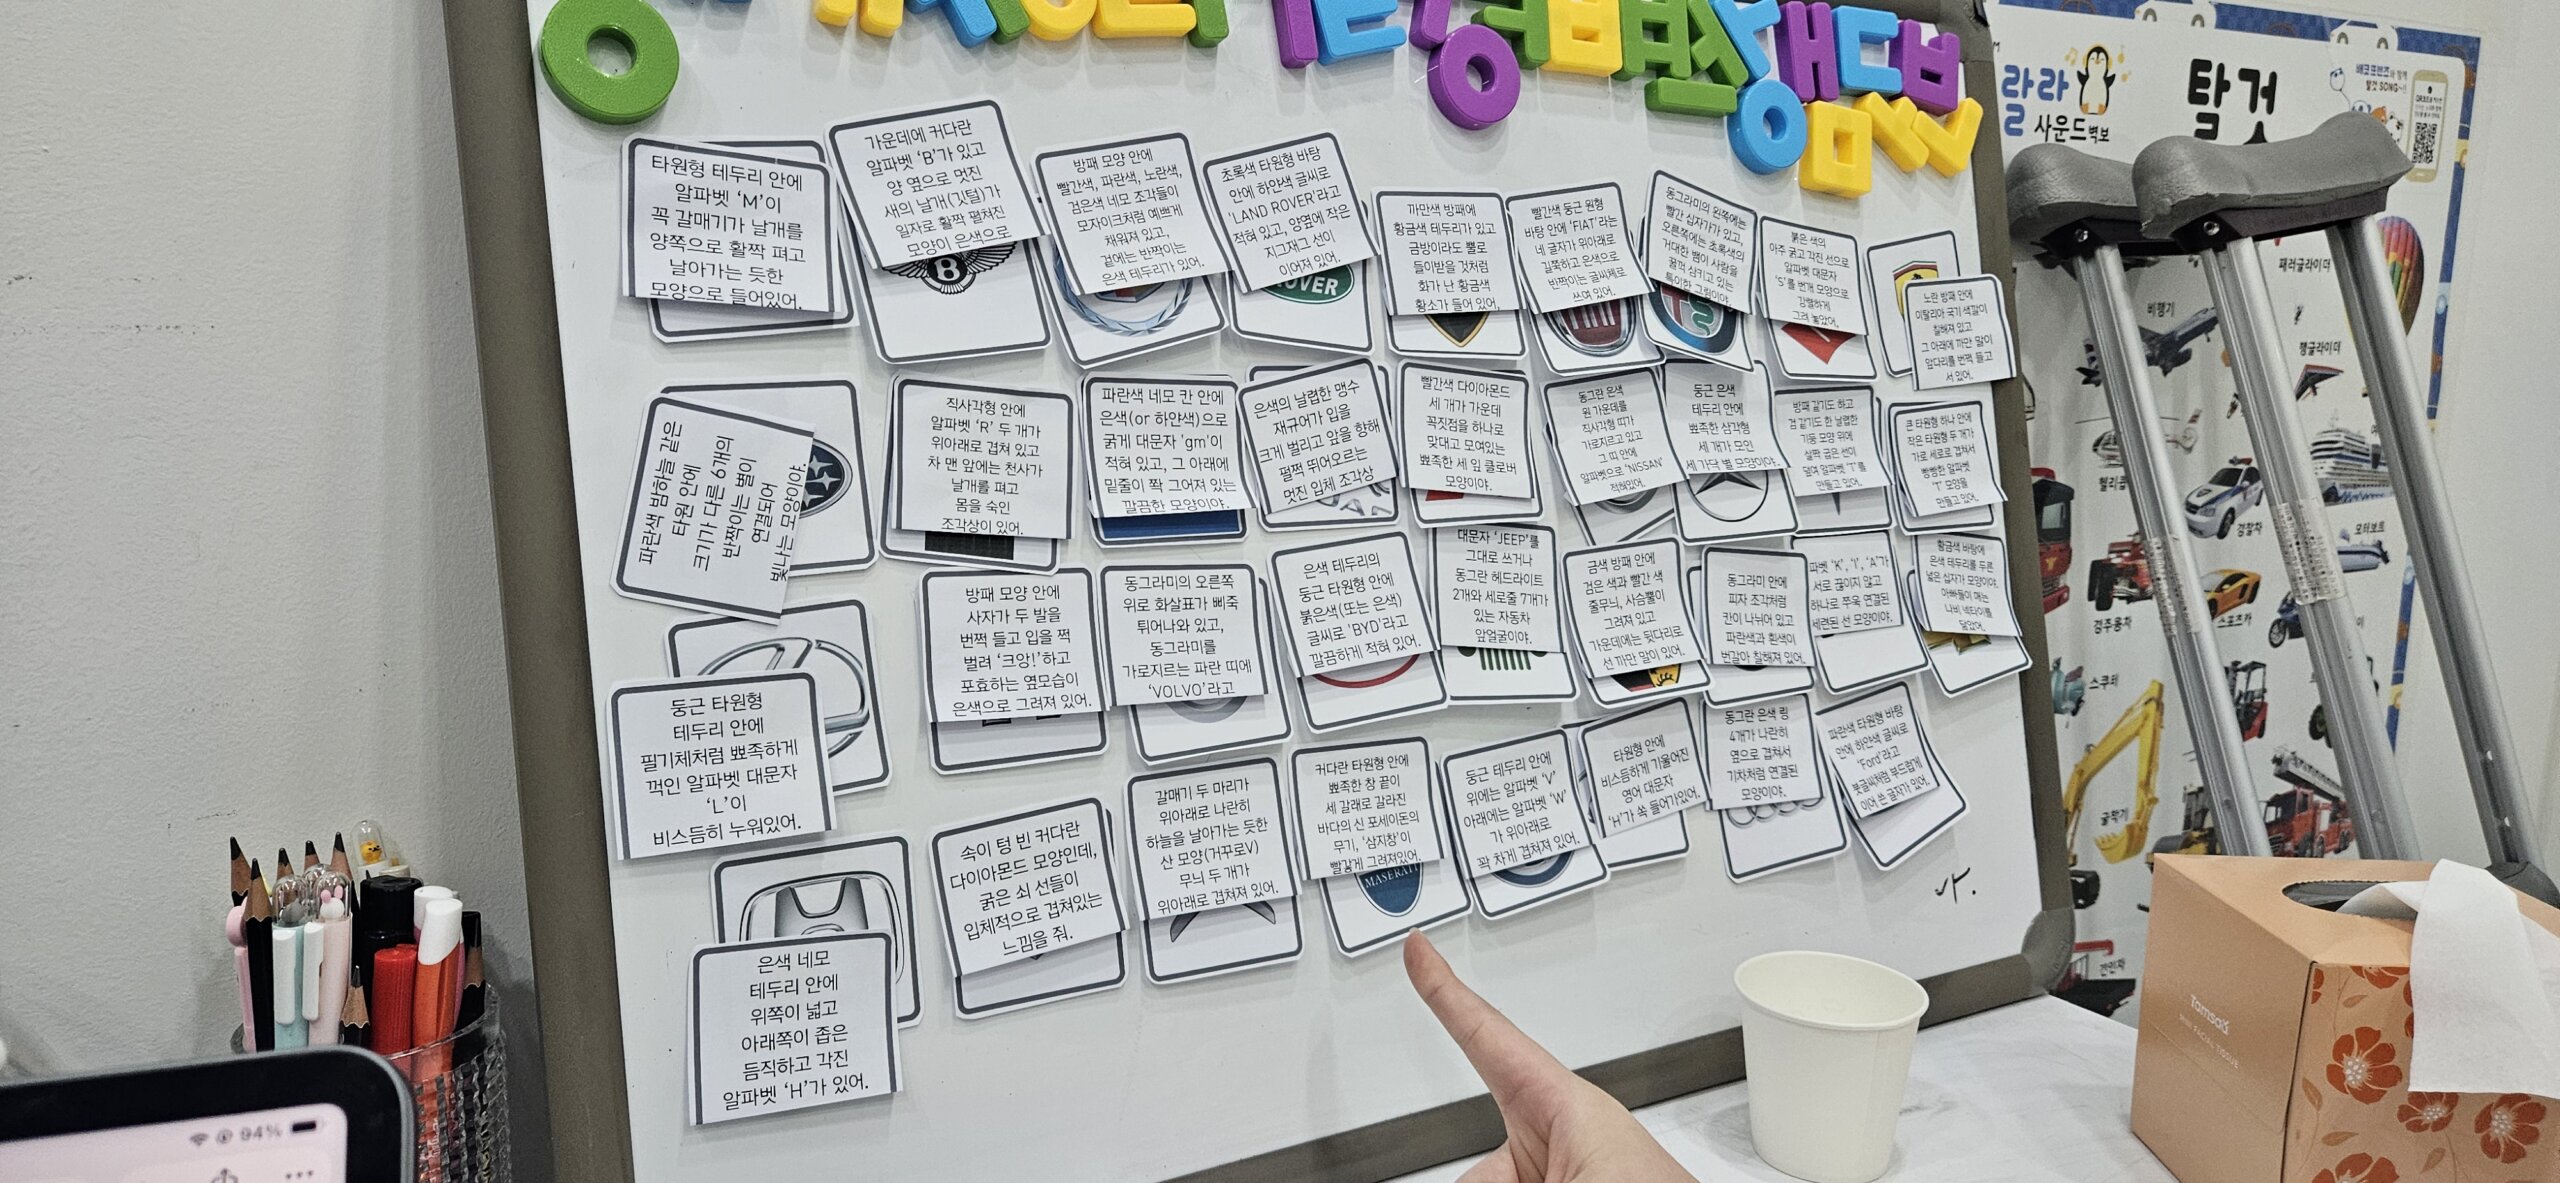 타원형 테두리 안에
알파벳 'M'이
꼭 갈매기가 날개를
양쪽으로 활짝 펴고
날아가는 듯한
모양으로 들어있어.
가운데에 커다란
알파벳 'B'가 있고
양 옆으로 멋진
새의 날개(깃털)가
일자로 활짝 펼쳐진
모양이 은색으로
B
방패 모양 안에
빨간색, 파란색, 노란색,
검은색 네모 조각들이
모자이크처럼 예쁘게
채워져 있고,
겉에는 반짝이는
은색 테두리가 있어.
초록색 타원형 바탕
안에 하얀색 글씨로
'LAND ROVER'라고
적혀 있고, 양옆에 작은
지그재그 선이
이어져 있어.
OVER
까만색 방패에
황금색 테두리가 있고
금방이라도 뿔로
들이받을 것처럼
화가 난 황금색
황소가 들어 있어.
빨간색 둥근 원형
바탕 안에 'FIAT'라는
네 글자가 위아래로
길쭉하고 은색으로
반짝이는 글씨체로
쓰여 있어.
동그라미의 왼쪽에는
빨간 십자가가 있고,
오른쪽에는 초록색의
거대한 뱀이 사람을
꿀꺽 삼키고 있는
특이한 그림이야.
붉은 색의
아주 굵고 각진 선으로
알파벳 대문자
'S'를 번개 모양으로
강렬하게
그려 놓았어.
노란 방패 안에
이탈리아 국기 색깔이
칠해져 있고
그 아래에 까만 말이
앞다리를 번쩍 들고
서 있어.
파란색 밤하늘 같은
타원 안에
크기가 다른 6개의
반짝이는 별이
연결되어
빛나는 모양이야.
직사각형 안에
알파벳 'R' 두 개가
위아래로 겹쳐 있고
차 맨 앞에는 천사가
날개를 펴고
몸을 숙인
조각상이 있어.
파란색 네모 칸 안에
은색(or 하얀색)으로
굵게 대문자 'gm'이
적혀 있고, 그 아래에
밑줄이 쫙 그어져 있는
깔끔한 모양이야.
은색의 날렵한 맹수
재규어가 입을
크게 벌리고 앞을 향해
펄쩍 뛰어오르는
멋진 입체 조각상
빨간색 다이아몬드
세 개가 가운데
꼭짓점을 하나로
맞대고 모여있는
뾰족한 세 잎 클로버
모양이야.
동그란 은색
원 가운데를
직사각형 띠가
가로지르고 있고
그 띠 안에
알파벳으로 'NISSAN'
적혀있어.
둥근 은색
테두리 안에
뾰족한 삼각형
세 개가 모인
세 가닥 별 모양이야.
방패 같기도 하고
검 같기도 한 날렵한
기둥 모양 위에
살짝 굽은 선이
덮여 알파벳 'T'를
만들고 있어.
큰 타원형 하나 안에
작은 타원형 두 개가
가로 세로로 겹쳐서
빵빵한 알파벳
'T' 모양을
만들고 있어.
둥근 타원형
테두리 안에
필기체처럼 뾰족하게
꺾인 알파벳 대문자
'L'이
비스듬히 누워있어.
방패 모양 안에
사자가 두 발을
번쩍 들고 입을 쩍
벌려 '크앙!'하고
포효하는 옆모습이
은색으로 그려져 있어.
동그라미의 오른쪽
위로 화살표가 삐죽
튀어나와 있고,
동그라미를
가로지르는 파란 띠에
'VOLVO'라고
은색 테두리의
둥근 타원형 안에
붉은색(또는 은색)
글씨로 'BYD'라고
깔끔하게 적혀 있어.
대문자 'JEEP'를
그대로 쓰거나
동그란 헤드라이트
2개와 세로줄 7개가
있는 자동차
앞얼굴이야.
금색 방패 안에
검은 색과 빨간 색
줄무늬, 사슴뿔이
그려져 있고
가운데에는 뒷다리로
선 까만 말이 있어.
동그라미 안에
피자 조각처럼
칸이 나뉘어 있고
파란색과 흰색이
번갈아 칠해져 있어.
파벳 'K', 'I', 'A'가
서로 끊이지 않고
하나로 쭈욱 연결된
세련된 선 모양이야.
황금색 바탕에
은색 테두리를 두른
넓은 십자가 모양이야.
아빠들이 매는
나비 넥타이를
닮았어.
은색 네모
테두리 안에
위쪽이 넓고
아래쪽이 좁은
듬직하고 각진
알파벳 'H'가 있어.
속이 텅 빈 커다란
다이아몬드 모양인데,
굵은 쇠 선들이
입체적으로 겹쳐있는
느낌을 줘.
갈매기 두 마리가
위아래로 나란히
하늘을 날아가는 듯한
산 모양(거꾸로V)
무늬 두 개가
위아래로 겹쳐져 있어.
커다란 타원형 안에
뾰족한 창 끝이
세 갈래로 갈라진
바다의 신 포세이돈의
무기, '삼지창'이
빨갛게 그려져있어.
MASERATI
둥근 테두리 안에
위에는 알파벳 'V'
아래에는 알파벳 'W'
가 위아래로
꽉 차게 겹쳐져 있어.
타원형 안에
비스듬하게 기울어진
영어 대문자
'H'가 쏙 들어가있어.
동그란 은색 링
4개가 나란히
옆으로 겹쳐서
기차처럼 연결된
모양이야.
파란색 타원형 바탕
안에 하얀색 글씨로
'Ford'라고
붓글씨처럼 부드럽게
이어 쓴 글자가 있어.
랄라
사운드벽보
탈것
탈것 SONG~!
패러글라이더
비행기
행글라이더
헬리콥
경찰차
모터보트
경주용차
스포츠카
스쿠터
굴착기
견인차
Tamsaa
FACIAL TISSUE
94%